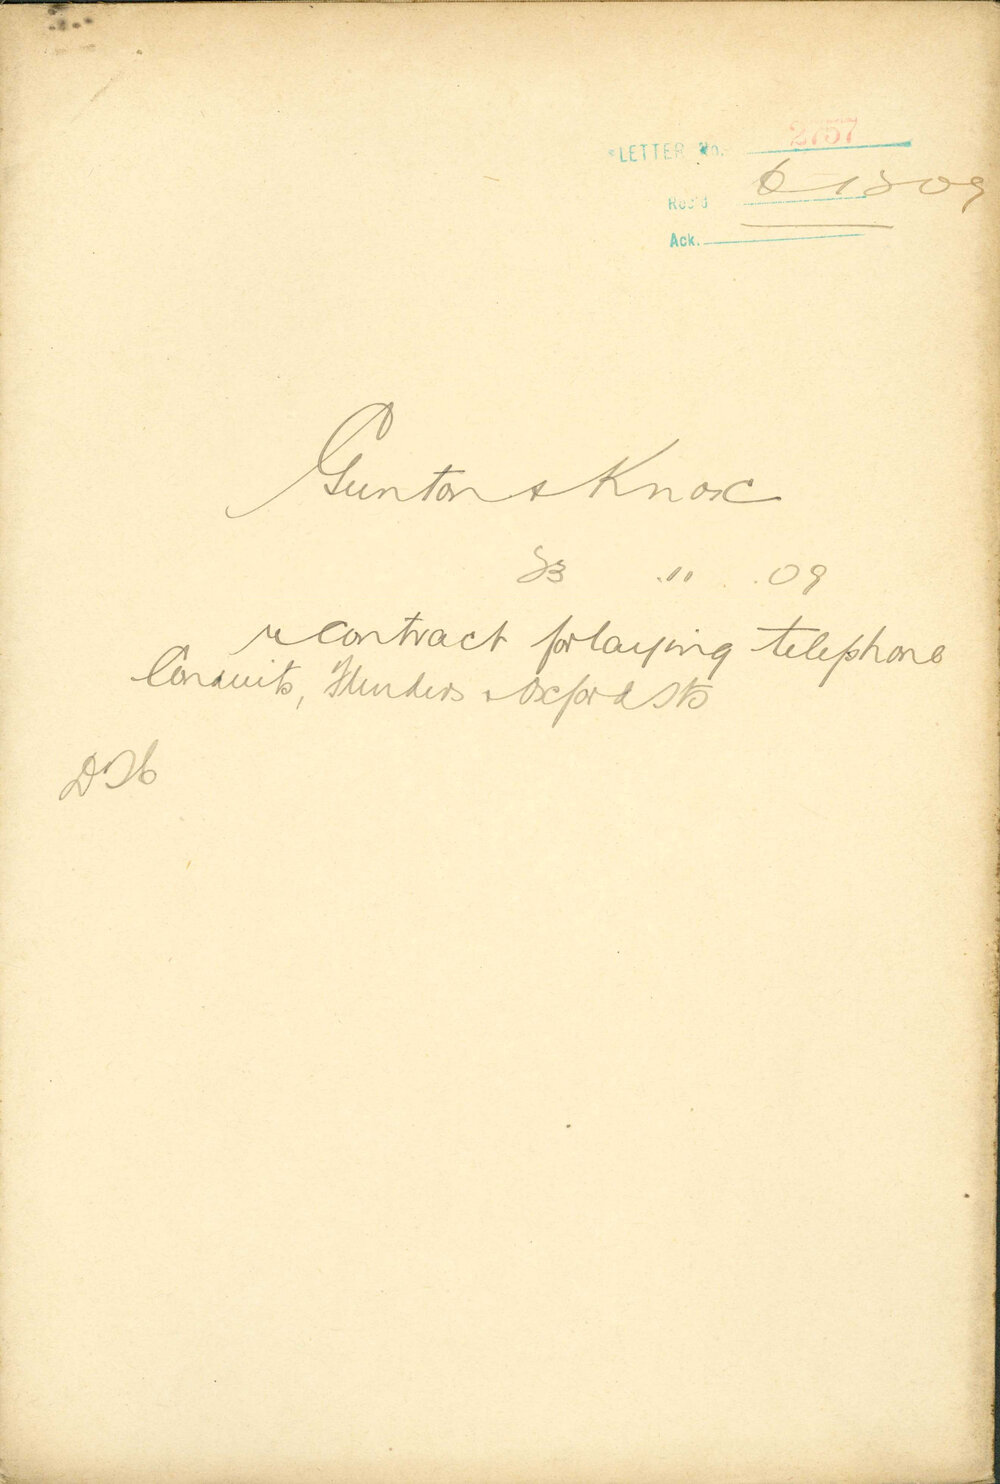 LETTER No. 2757
Rec'd
Ack.
Gunton & Knox
23 .11 . 09
re contract for laying telephone
Conduits, Flinders & Oxford Sts